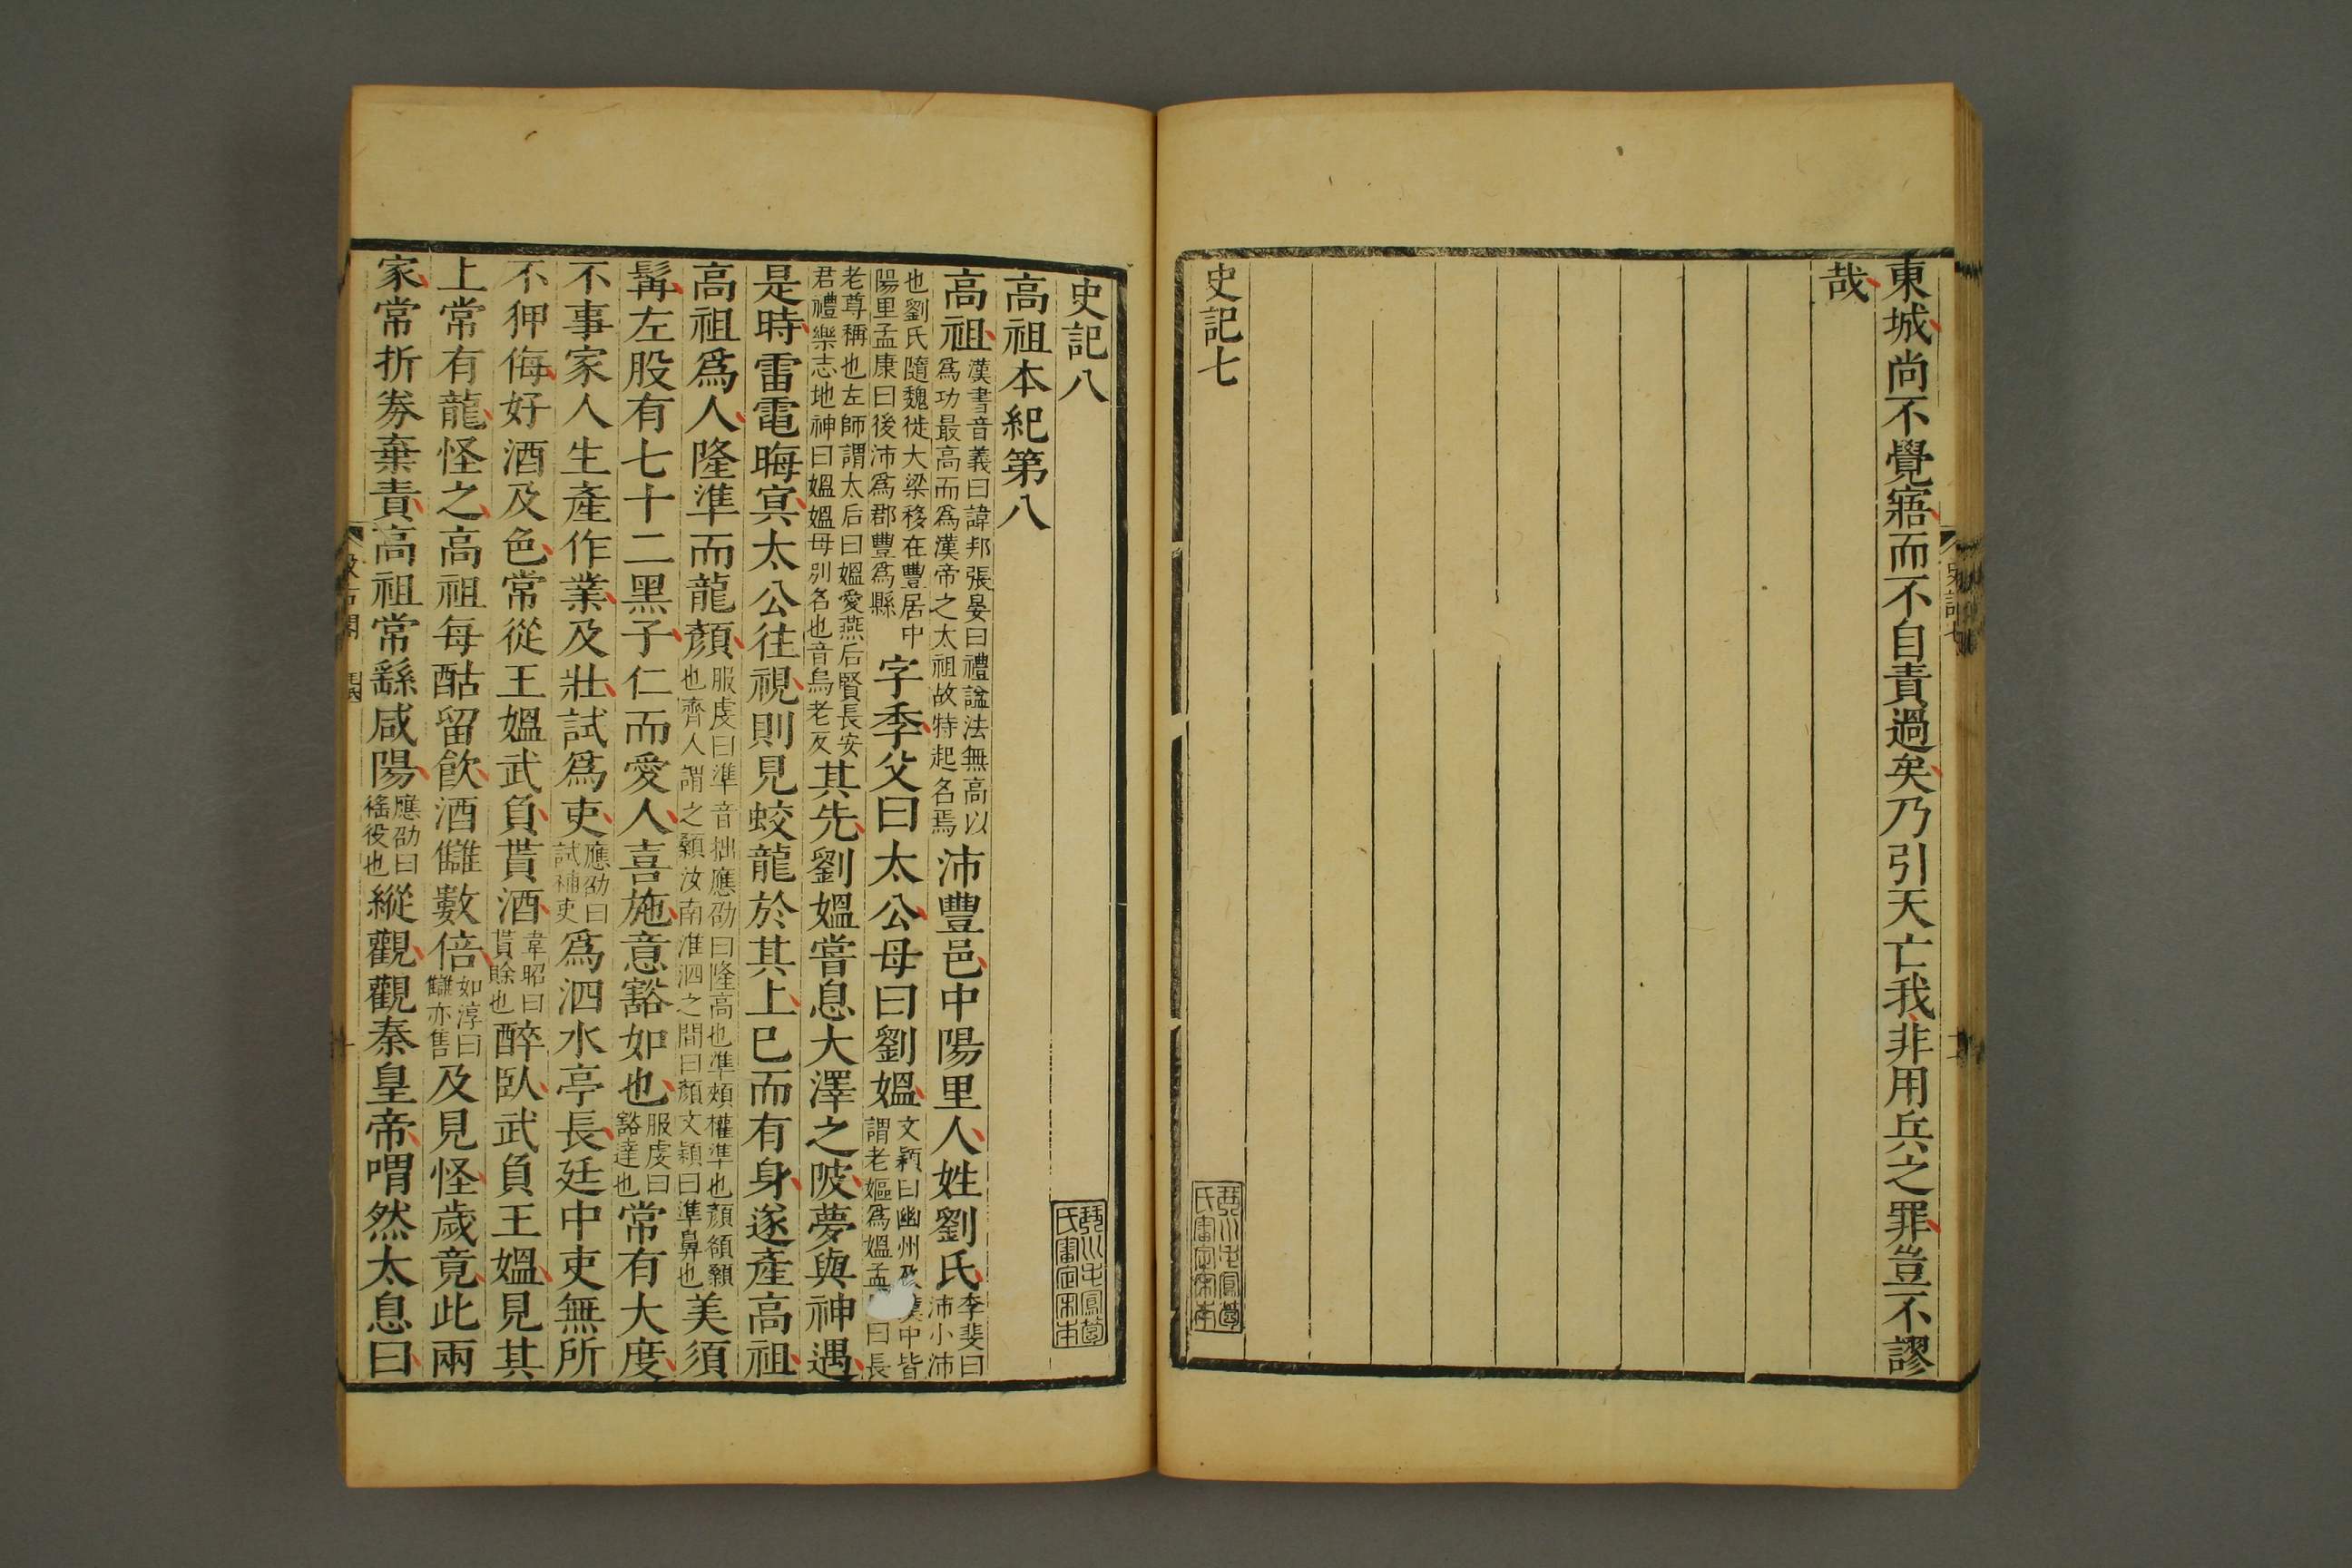 東城尚不覺寤而不自責過矣乃引天亡我非用兵之罪豈不謬
哉
史記七
史記八
高祖本紀第八
高祖漢書音義曰諱邦張晏曰禮謚法無高以爲功最高而爲漢帝之太祖故特起名焉沛豐邑中陽里人姓劉氏李斐曰沛小沛
也劉氏隨魏徙大梁移在豐居中陽里孟康曰後沛爲郡豐爲縣字季父曰太公母曰劉媼文穎曰幽州及漢中皆謂老嫗爲媼孟曰長
老尊稱也左師謂太后曰媼愛燕后賢長安君禮樂志地神曰媼媼母別名也音烏老反其先劉媼嘗息大澤之陂夢與神遇
是時雷電晦冥太公往視則見蛟龍於其上已而有身遂產高祖
高祖爲人隆準而龍顏服虔曰準音拙應劭曰隆高也準頰權準也顏頟顙也齊人謂之顙汝南淮泗之間曰顏文穎曰準鼻也美須
髯左股有七十二黑子仁而愛人喜施意豁如也服虔曰豁達也常有大度
不事家人生產作業及壯試爲吏應劭曰試補吏爲泗水亭長廷中吏無所
不狎侮好酒及色常從王媼武負貰酒韋昭曰貰賖也醉臥武負王媼見其
上常有龍怪之高祖每酤留飲酒讎數倍如淳曰讎亦售及見怪歲竟此兩
家常折券棄責高祖常繇咸陽應劭曰徭役也縱觀觀秦皇帝喟然太息曰